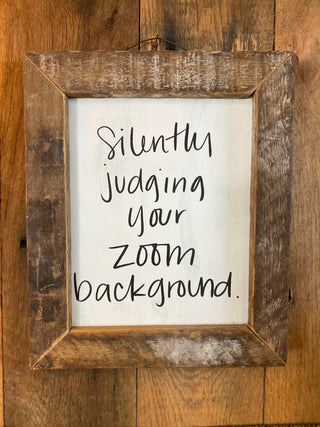 Silently
judging
your
zoom
background.